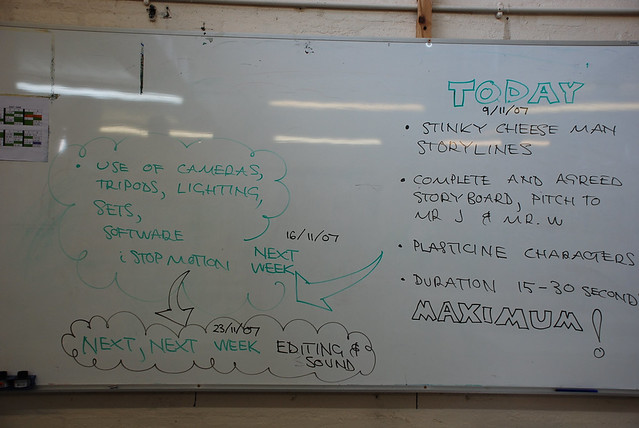 TODAY
9/11/07
• STINKY CHEESE MAN
STORYLINES
• COMPLETE AND AGREED
STORYBOARD, PITCH TO
MR J & MR. W
• PLASTICINE CHARACTERS
• DURATION 15-30 SECOND
MAXIMUM!
• USE OF CAMERAS,
TRIPODS, LIGHTING,
SETS,
SOFTWARE
i STOP MOTION
16/11/07
NEXT
WEEK
23/11/07
NEXT, NEXT WEEK EDITING &
SOUND